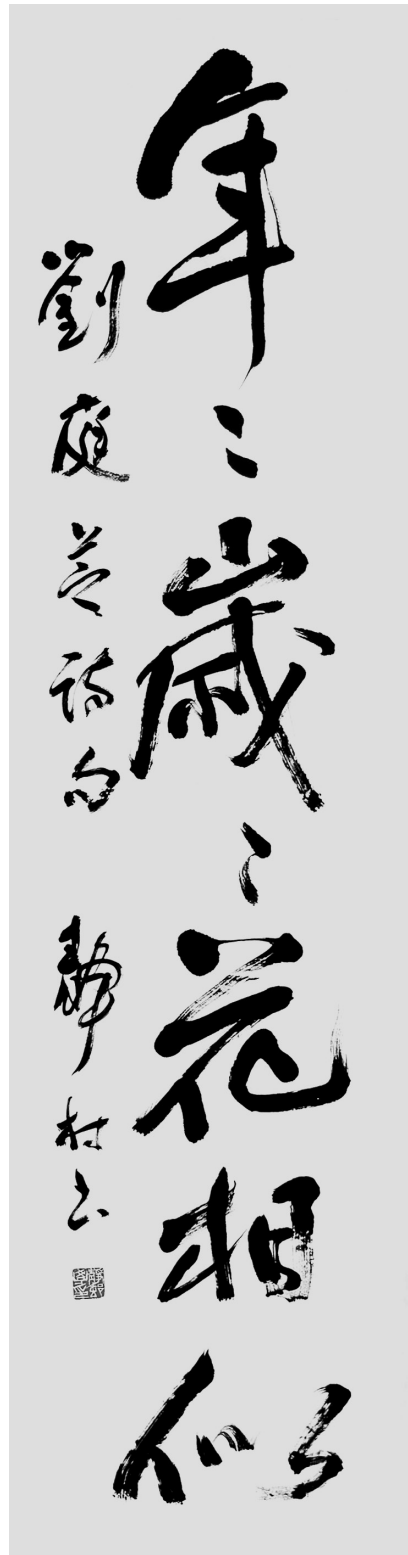 年々歳々花相似
劉庭芝詩句 靜村书